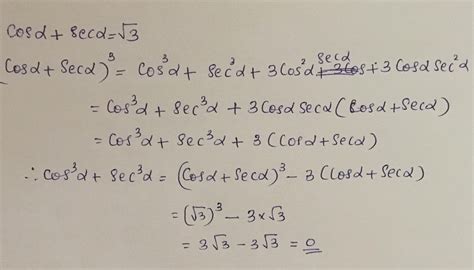 cosα + secα = √3
(cosα + secα)³ = cos³α + sec³α + 3cos²α secα + 3 cosα sec²α
= cos³α + sec³α + 3cosα secα (cosα + secα)
= cos³α + sec³α + 3 (cosα + secα)
∴ cos³α + sec³α = (cosα + secα)³ − 3 (cosα + secα)
= (√3)³ − 3×√3
= 3√3 − 3√3 = 0